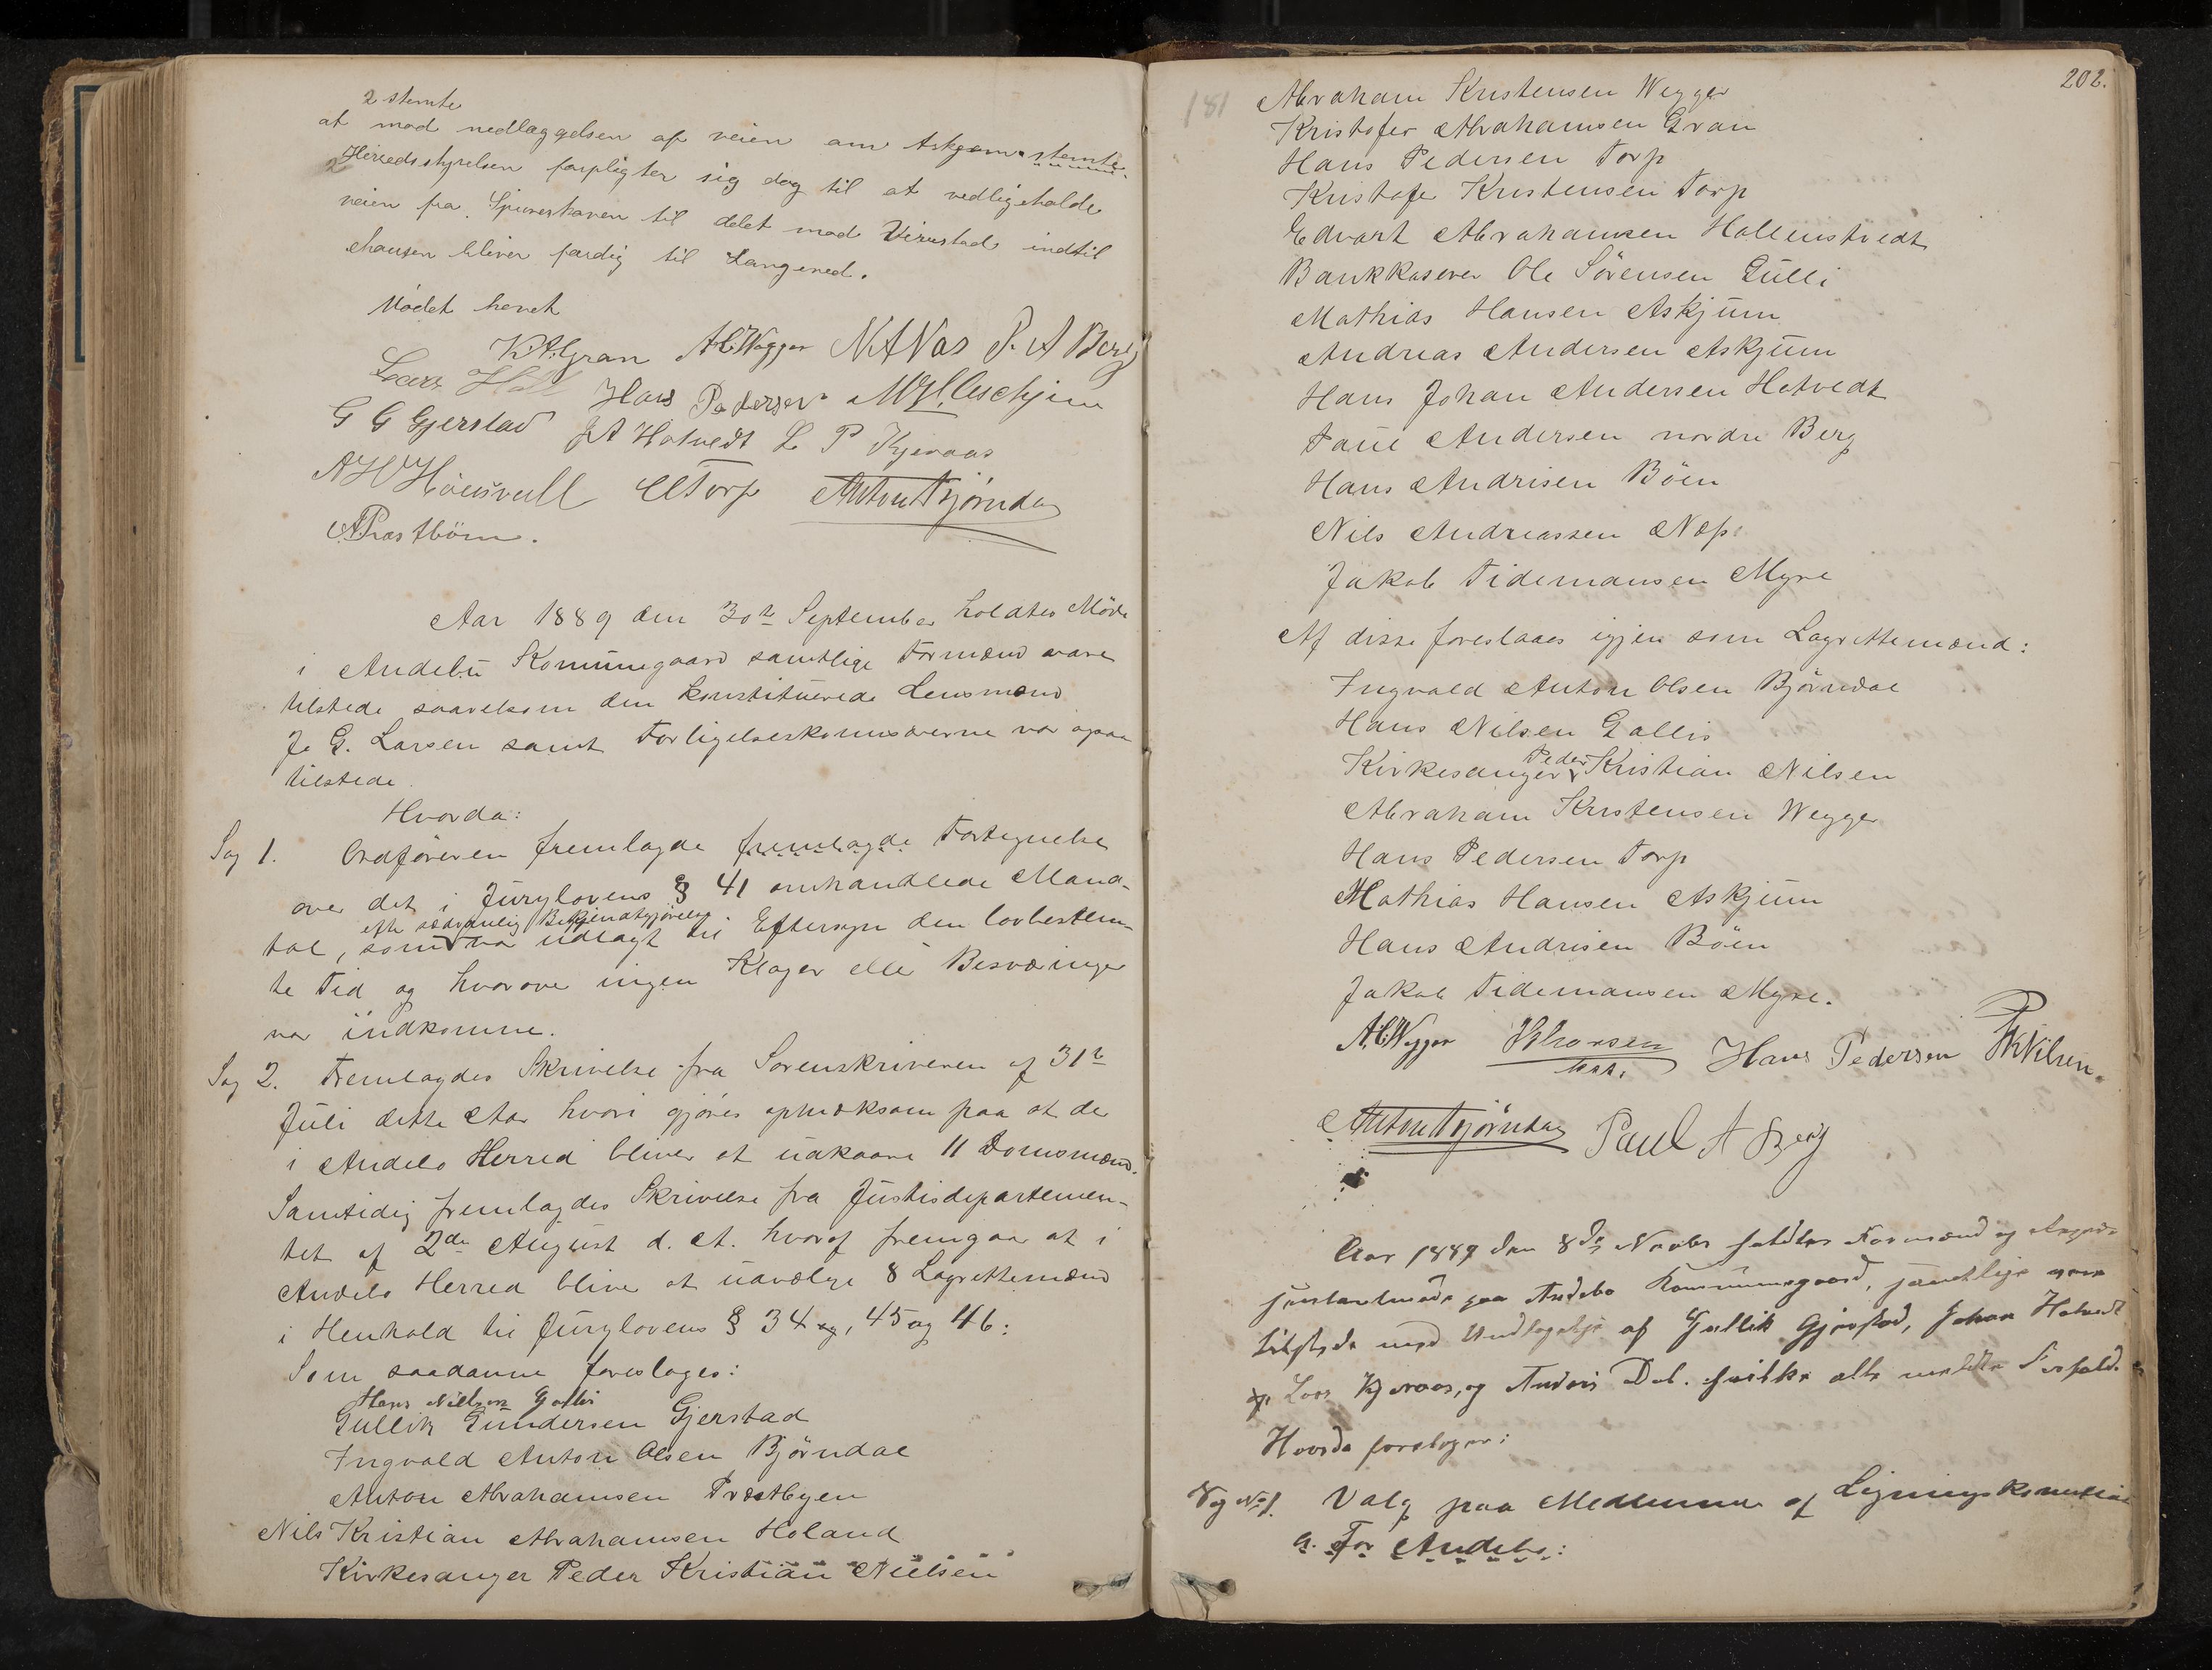 2 stemte
at mod nedlæggelsen af veien om Askjem stemte
2 Herredsstyrelsen forpligter sig dog til at vedligeholde
veien fra Spirerhaven til delet mod Virustad indtil
chauseen bliver færdig til Langeved.
Mødet hevet
K. A. Gran A C Wegger N A Næs P. A Berg
Lars Hans Pedersen M H Aschjem
G G Gjerstad J A Hotvedt L P Kjeraas
Torp Anton Bjørndal
A Præstbøen.
Aar 1889 den 30te September holdtes Møde
i Andebu Kommunegaard samtlige Formænd vare
tilstede saavelsom den konstituerede Lensmand
J. G. Larsen samt Forligelseskommisærerne var ogsaa
tilstede.
Hvorda:
Sag 1. Ordføreren fremlagde fremlagde Fortegnelse
over det i Jurylovens § 41 omhandlede Mand-
efter sedvanlig Bekjendtgjørelse
tal, som var udlagt til Eftersyn den lovbestem-
te Tid og hvorove ingen Klager eller Besværinger
var indkomne.
Sag 2. Fremlagdes Skrivelse fra Sorenskriveren af 31te
Juli dette Aar hvori gjøres opmærksom paa at der
i Andebo Herred bliver at udkaare 11 Domsmænd.
Samtidig fremlagdes Skrivelse fra Justisdepartemen-
tet af 2den August d. A. hvoraf fremgaar at i
Andebo Herred blive at udvælge 8 Lagrettemænd
i Henhold til Jurylovens § 34 og, 45 og 46:
Som saadanne foreslages:
Hans Nilsen Gallis
Gullik Gundersen Gjerstad
Ingvald Anton Olsen Bjørndal
Anton Abrahamsen Præstbyen
Nils Kristian Abrahamsen Holand
Kirkesanger Peder Kristian Nielsen
181
202.
Abraham Kristensen Wegger
Kristofer Abrahamsen Gran
Hans Pedersen Torp
Kristofer Kristensen Torp
Edvart Abrahamsen Hallenstvedt
Bankkaserer Ole Sørensen Gulli
Mathias Hansen Askjum
Andreas Andersen Askjum
Hans Johan Andersen Hotvedt
Paul Andersen nordre Berg
Hans Andrisen Bøen
Nils Andreassen Næss
Jakob Tidemansen Myre
Af disse foreslaaes igjen som Lagrettemænd:
Ingvald Anton Olsen Bjørndal
Hans Nilsen Gallis
Kirkesanger Peder Kristian Nilsen
Abraham Kristensen Wegger
Hans Pedersen Torp
Mathias Hansen Askjum
Hans Andrisen Bøen
Jakob Tidemansen Myre.
A. C. Wegger Hans Pedersen P K Nilsen.
Anton Bjørndal Paul A Berg
Aar 1889 den 8de Novbr holdtes Formænd og Repræ-
sentantmøde paa Andebo Kommunegaard, samtlige vare
tilstede med Undtagelse af Gullik Gjerstad, Johan Hotvedt
Lars Kjeraas, og Anders Dal. hvilke alle meldte Forfald.
Hvorda foretoges:
Sag No 1. Valg paa Medlemmer af Ligningskommision
a. For Andebo: